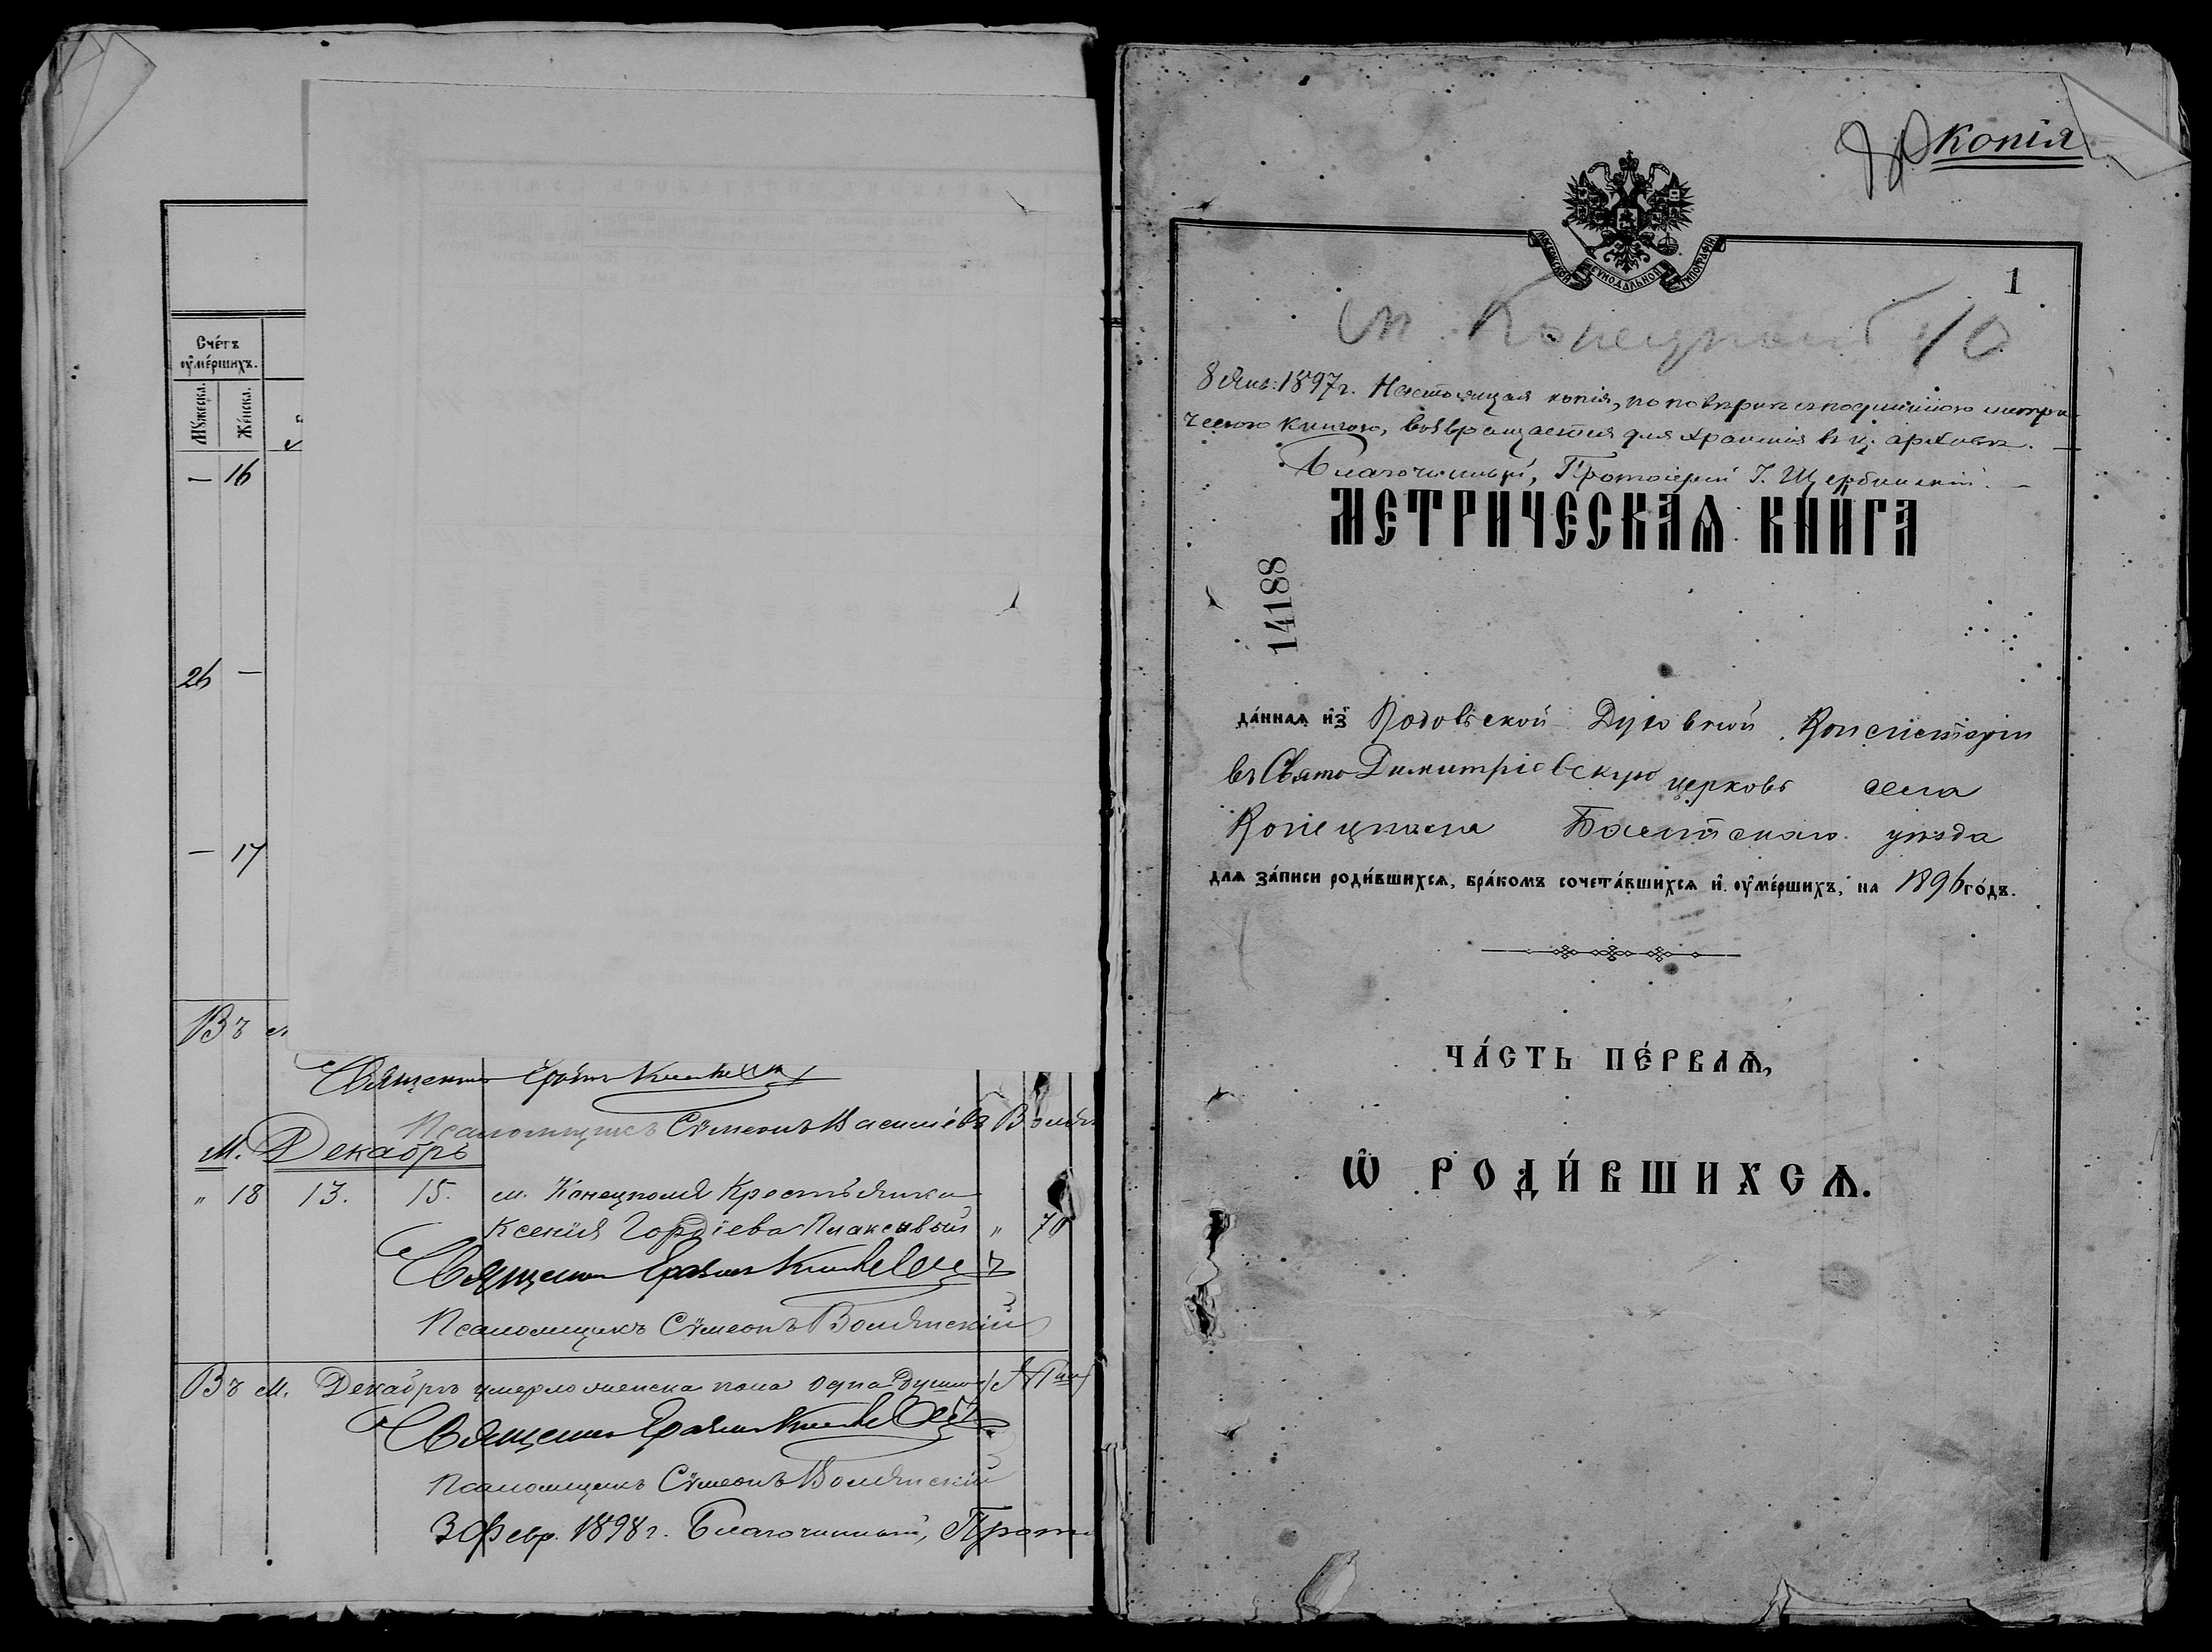 Сче́тъ
оу҆ме́ршихъ.
Мꙋжеска.
Же́нска.
— 16
26 —
— 17
Въ м.
Священникъ
Псаломщикъ Сѵмеонъ Васильевъ
М. Декабрь
" 18 13. 15. м. Конецполя Крестьянка
Ксенія Гордіева Плаксивый " 70
Священникъ
Псаломщикъ Сѵмеонъ Волянскій
Въ м. Декабрѣ умерло женска пола одна душа
Священникъ
Псаломщикъ Сѵмеонъ Волянскій
3 Февр. 1898 г. Благочинный, Прот
Копія
МОСКОВСКОЙ СѴНОДАЛЬНОЙ ТИПОГРАФІИ
1
м. Конецполь 10
8 Янв: 1897 г. Настоящая копія, по повѣркѣ съ подлинною метри-
ческою книгою, возвращается для храненія въ ц. архивъ. —
Благочинный, Протоіерей І. Щербинскій. —
МЕТРИЧЕСКАѦ КНИ́ГА
14188
да́ннаѧ и҆з̾ Подольской Духовной Консисторіи
въ Свято Димитріевскую церковь села
Конецполя Балтскаго уѣзда
длѧ за́писи роди́вшихсѧ, бра́комъ сочета́вшихсѧ и҆ оу҆ме́ршихъ, на 1896 го́дъ.
ЧА́СТЬ ПЕ́РВАѦ,
Ѡ҆ РОДИ́ВШИХСѦ.